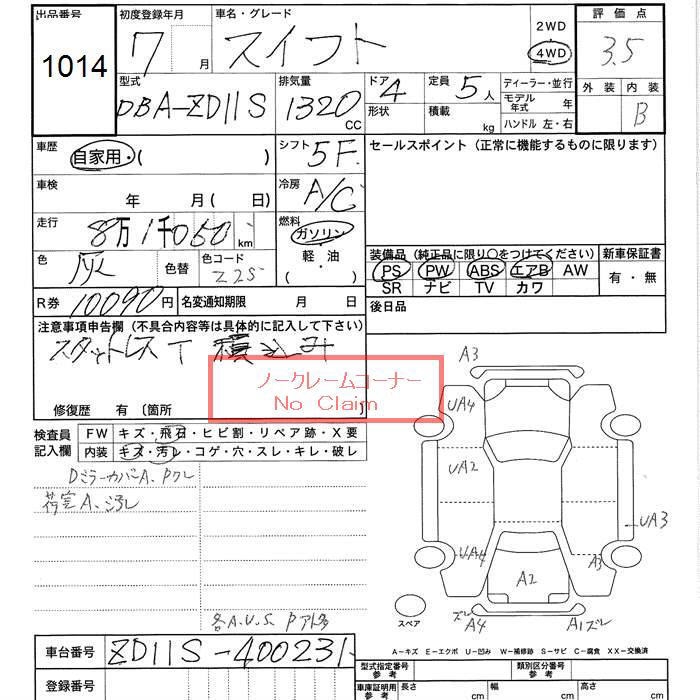 出品番号 初度登録年月 車名・グレード 2WD 評価点
1014 7月 スイフト 4WD 3.5
型式 排気量 ドア 定員 ディーラー・並行 外装 内装
DBA-ZD11S 1320 CC 4 形状 5人 積載 kg モデル年式 年 B
ハンドル 左・右
車歴 自家用・( ) シフト 5F セールスポイント (正常に機能するものに限ります)
車検 年 月 (日) 冷房 A/C
走行 8万1千050 km 燃料 ガソリン
軽・油
( )
色 灰 色替 色コード Z2S
装備品 (純正品に限り○をつけてください) 新車保証書
PS PW ABS エアB AW 有・無
SR ナビ TV カワ
R券 10090円 名変通知期限 月 日 後日品
注意事項申告欄 (不具合内容等は具体的に記入して下さい)
スタットレスT 積込み
ノークレームコーナー
No Claim
修復歴 有 〔箇所 〕
検査員記入欄 FW キズ・飛石・ヒビ割・リペア跡・X要
内装 キズ・汚レ・コゲ・穴・スレ・キレ・破レ
DミラーカバーA、Pワレ
荷室A、汚レ
各A.U.S.
A3
UA4
UA2
UA3
UA4
A3
A2
ズレ A4
A1ズレ
スペア
A-キズ E-エクボ U-凹み W-補修跡 S-サビ C-腐食 XX-交換済
車台番号 ZD11S-400231
型式指定番号 参考 類別区分番号 参考
登録番号 車庫証明用 参考 長さ cm 幅 cm 高さ cm